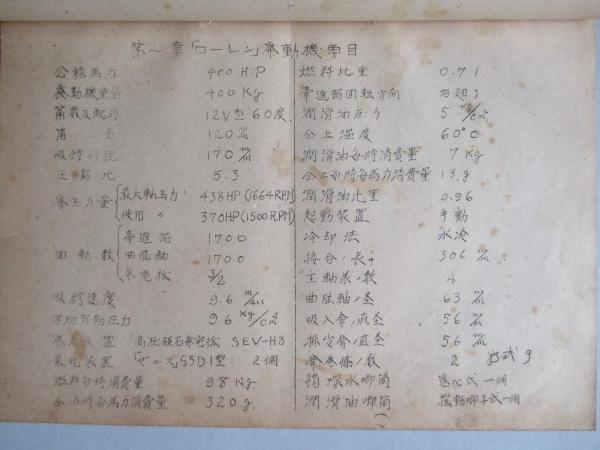 第一章「ローレン」発動機要目
公称馬力 400 H.P
発動機重量 400 Kg
筒数及配列 12V型 60度
筒径 120 ㎜
吸鍔行程 170 ㎜
圧縮比 5.3
発生力量 最大軸馬力 438HP(1664R.P.M)
使用 〃 370HP(1500R.P.M)
回動数 推進器 1700
曲肱軸 1700
発電機 3/2
吸鍔速度 9.6 m/sec
平均有効圧力 9.6 Kg/c㎡
装置 高圧磁石発電機 SEV-H
気化装置 「ゼニス」55DI型 2個
燃料毎時消費量 98 Kg
仝毎時毎馬力消費量 320 g.
燃料比重 0.71
推進器回転方向 右廻り
潤滑油圧力 5 Kg/c㎡
仝上温度 60°C
潤滑油毎時消費量 7 Kg
仝上毎時毎馬力消費量 18.g
潤滑油比重 0.96
起動装置 手動
冷却法 水冷
接合ノ長サ 306 ㎜
主軸承ノ数 4
曲肱軸ノ径 63 ㎜
吸入弁ノ直径 56 ㎜
排出弁ノ直径 56 ㎜
弁発條ノ数 2
循環水喞筒 遠心式 一個
潤滑油喞筒 式一個